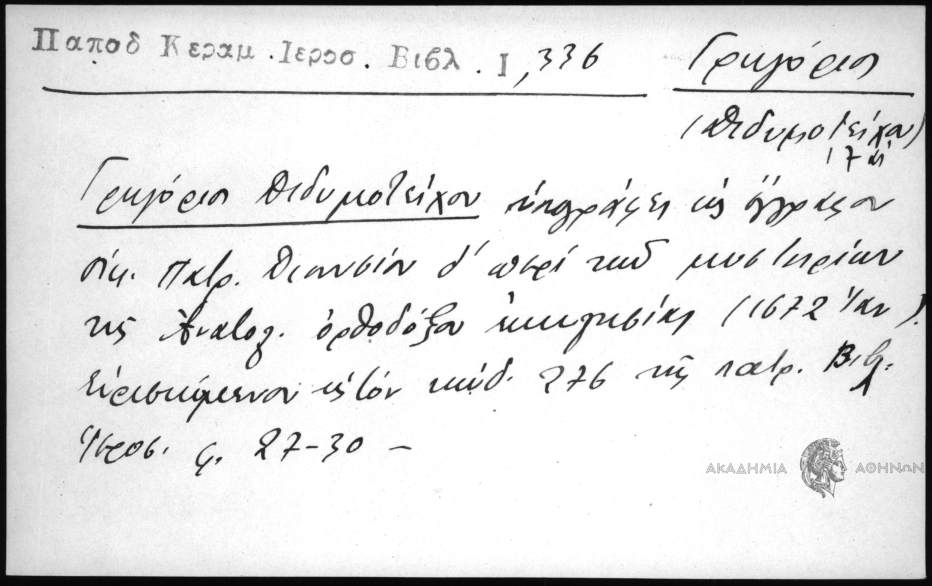 Παποδ Κεραμ. Ιεροσ. Βιβλ. Ι, 336
Γρηγόριος
(Διδυμοτείχου)
17 αἰ
Γρηγόριος Διδυμοτείχου ὑπογράφει εἰς ἔγγραφον
οἰκ. Πατρ. Διονυσίου δ' περί τῶν μυστηρίων
τῆς Ἀνατολ. ὀρθοδόξου ἐκκλησίας (1672 Ἰαν).
Εὑρισκόμενον εἰς τόν κώδ. 276 τῆς πατρ. Βιβλ.
Ἱεροσ. φ. 27-30 -
ΑΚΑΔΗΜΙΑ ΑΘΗΝΩΝ